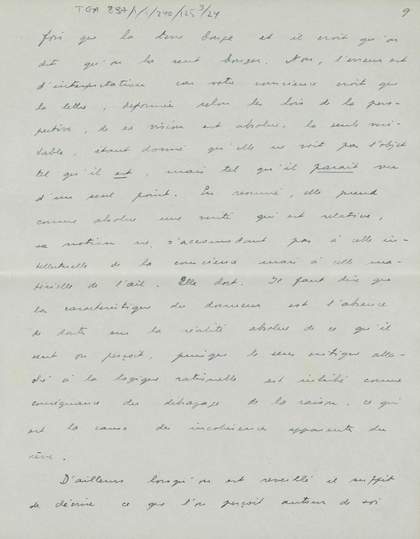 TGA 887/1/1/240/125 3/24
9
fois que la terre bouge et il croit qu'on
dit qu'on la sent bouger. Non, l'erreur est
d'interprétation car votre conscience croit que
la lettre, déformée selon les lois de la pers-
pective, de sa vision est absolue, la seule véri-
table, étant donné qu'elle ne voit pas l'objet
tel qu'il est, mais tel qu'il paraît vu
d'un seul point. En résumé, elle prend
comme absolue une vérité qui est relative,
sa notion ne s'accommodant pas à celle in-
tellectuelle de la conscience mais à celle ma-
térielle de l'œil. Elle dort. Il faut dire que
la caractéristique du dormeur est l'absence
de doute sur la réalité absolue de ce qu'il
sent ou perçoit, puisque le sens critique
à la logique rationnelle est inhibé comme
conséquence du débrayage de la raison, ce qui
est la cause des incohérences apparentes du
rêve.
D'ailleurs lorsqu'on est réveillé il suffit
de décrire ce que l'on perçoit autour de soi